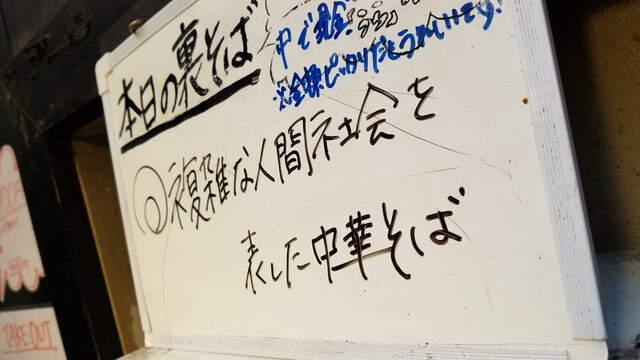 本日の裏そば
中で現金
※金額ピッタリだとうれしいです!
複雑な人間社会を
表した中華そば
TAKE OUT